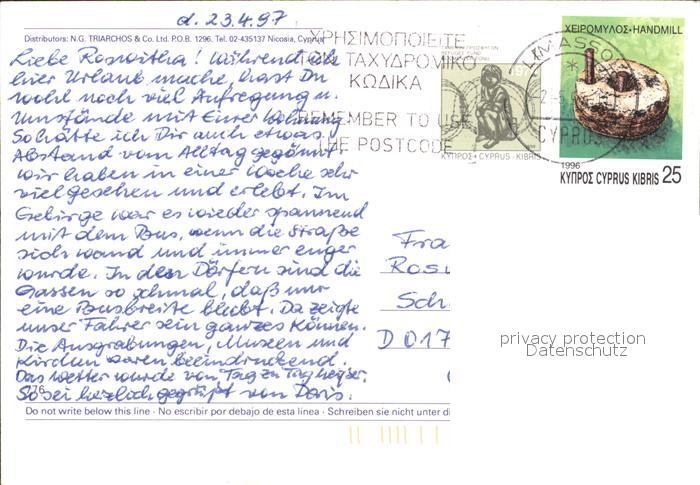 d. 23.4.97
Distributors: N.G. TRIARCHOS & Co. Ltd. P.O.B. 1296, Tel. 02-435137 Nicosia, Cyprus
Liebe Roswitha! Während ich
hier Urlaub mache, hast Du
wohl noch viel Aufregung u.
Umstände mit Eurer Wohnung.
So hätte ich Dir auch etwas
Abstand vom Alltag gegönnt.
Wir haben in einer Woche sehr
viel gesehen und erlebt. Im
Gebirge war es wieder spannend
mit dem Bus, wenn die Straße
sich wand und immer enger
wurde. In den Dörfern sind die
Gassen so schmal, daß nur
eine Busbreite bleibt. Da zeigte
unser Fahrer sein ganzes Können.
Die Ausgrabungen, Museen und
Kirchen waren beeindruckend.
Das Wetter wurde von Tag zu Tag heißer.
276
So sei herzlich gegrüßt von Doris.
Do not write below this line · No escribir por debajo de esta linea · Schreiben sie nicht unter di
ΧΡΗΣΙΜΟΠΟΙΕΙΤΕ
ΤΟΝ ΤΑΧΥΔΡΟΜΙΚΟ
ΚΩΔΙΚΑ
REMEMBER TO USE
THE POSTCODE
REFUGEE FUND
ΚΥΠΡΟΣ · CYPRUS · KIBRIS
LIMASSOL
CYPRUS
ΧΕΙΡΟΜΥΛΟΣ · HANDMILL
1996
ΚΥΠΡΟΣ CYPRUS KIBRIS 25
Fra
Ros
Sch
D 017
privacy protection
Datenschutz